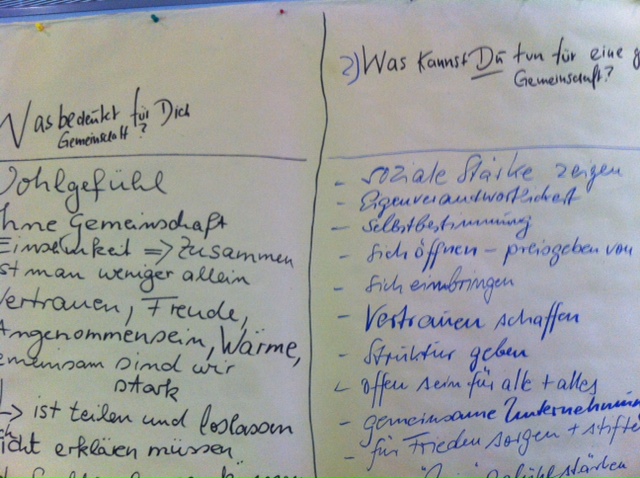 Was bedeutet für Dich
Gemeinschaft?
Wohlgefühl
Ohne Gemeinschaft
Einsamkeit => Zusammen
ist man weniger allein
Vertrauen, Freude,
Angenommensein, Wärme,
gemeinsam sind wir
stark
-> ist teilen und loslassen
nicht erklären müssen
2) Was kannst Du tun für eine g
Gemeinschaft?
- soziale Stärke zeigen
- Eigenverantwortlichkeit
- Selbstbestimmung
- Sich öffnen - preisgeben von
- Sich einbringen
- Vertrauen schaffen
- Struktur geben
- offen sein für alle + alles
- gemeinsame Unternehmun
- für Frieden sorgen + stifte
gefühl stärken